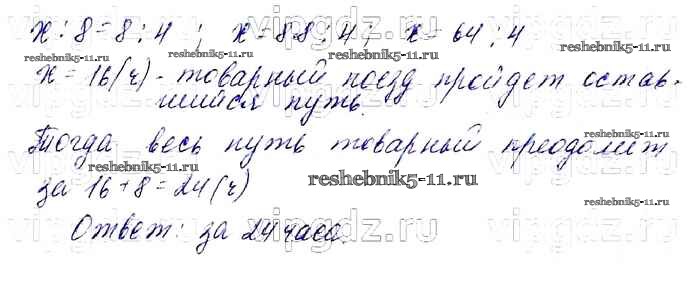 x : 8 = 8 : 4 ; x = 8·8 : 4 ; x = 64 : 4
x = 16 (ч) - товарный поезд пройдет остав-
шийся путь.
Тогда весь путь товарный преодолит
за 16 + 8 = 24 (ч)
Ответ: за 24 часа.
reshebnik5-11.ru
reshebnik5-11.ru
reshebnik5-11.ru
reshebnik5-11.ru
reshebnik5-11.ru
reshebnik5-11.ru
vipgdz.ru